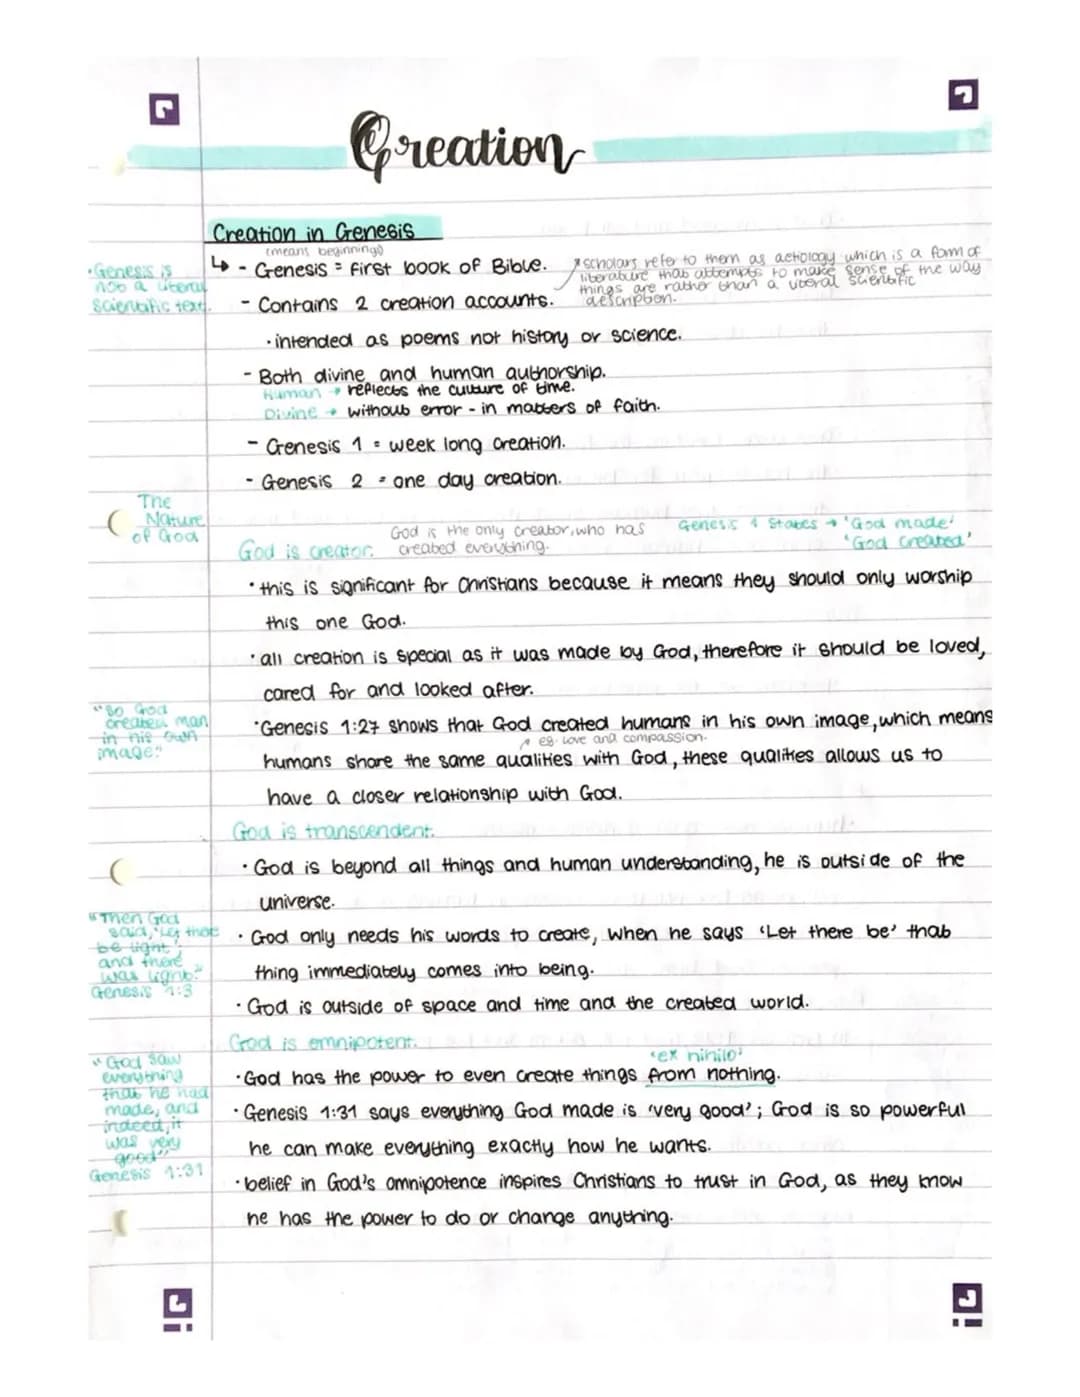 Creation
Creation in Genesis
(means beginnings)
↳ - Genesis = first book of Bible.
* scholars refer to them as aetiology which is a form of
literature that attempts to make sense of the way
things are rather than a literal scientific
description.
• Genesis is
not a literal
scientific text.
- Contains 2 creation accounts.
· intended as poems not history or science.
- Both divine and human authorship.
Human → reflects the culture of time.
Divine → without error - in matters of faith.
- Genesis 1 = week long creation.
- Genesis 2 = one day creation.
The
Nature
of God
God is creator.
God is the only creator, who has
created everything.
Genesis 1 States → 'God made'
'God created'
· this is significant for Christians because it means they should only worship
this one God.
· all creation is special as it was made by God, therefore it should be loved,
cared for and looked after.
"So God
created man
in his own
image."
· Genesis 1:27 shows that God created humans in his own image, which means
eg. love and compassion.
humans share the same qualities with God, these qualities allows us to
have a closer relationship with God.
God is transcendent.
· God is beyond all things and human understanding, he is outside of the
universe.
"Then God
said, 'Let there
be light';
and there
was light."
Genesis 1:3
· God only needs his words to create, when he says 'Let there be' that
thing immediately comes into being.
· God is outside of space and time and the created world.
God is omnipotent.
'ex nihilo'
· God has the power to even create things from nothing.
"God saw
everything
that he had
made, and
indeed, it
was very
good"
Genesis 1:31
· Genesis 1:31 says everything God made is 'very good'; God is so powerful
he can make everything exactly how he wants.
· belief in God's omnipotence inspires Christians to trust in God, as they know
he has the power to do or change anything.